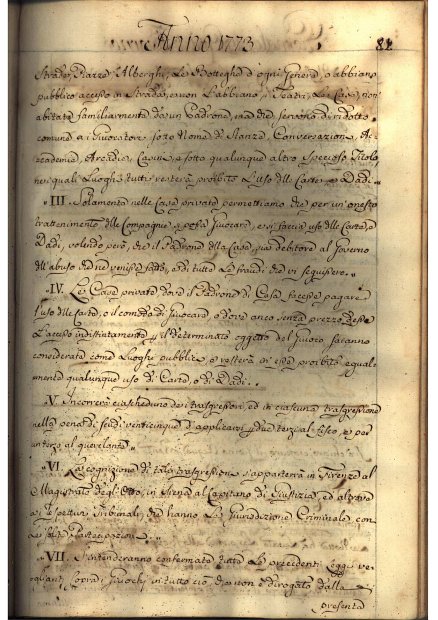 Anno 1773
Strade, Piazze, Alberghi, Le Botteghe d'ogni Genere, o abbiano
pubblico accesso in Strada, o non L'abbiano, i Teatri, Le Case, non
abitate familiarmente da un Padrone, ma che servono di ridotto
comune a i Giuocatori sotto Nome di Stanze, Conversazioni, Ac-
cademie, Arcadie, Casini, e sotto qualunque altro Specioso Titolo,
nei quali Luoghi tutti resterà proibito L'uso delle Carte, e Dadi.
III. Solamente nelle Case private permettiamo che per un'onesto
trattenimento delle Compagnie si possa Giuocare, e si faccia uso delle Carte, e
Dadi, volendo però, che il Padrone della Casa, sia debitore al Governo
dell'abuso che ne venisse fatto, e di tutte Le fraudi che vi seguissero.
IV. Le Case private dove il Padrone di Casa facesse pagare
l'uso delle Carte, o il comodo di Giuocare, o dove anco senza prezzo desse
L'accesso indistintamente per il determinato oggetto del Giuoco saranno
considerate come Luoghi pubblici, e resterà in esse proibito egual-
mente qualunque uso di Carte, o di Dadi.
V. Incorrerà ciascheduno dei trasgressori, ed in ciascuna trasgressione
nella pena di scudi venticinque d'applicarsi per due terzi al fisco, e per
un terzo al querelante.
VI. La cognizione di tali trasgressioni s'apparterrà in Firenze al
Magistrato degl'Otto, in Siena al Capitano di Giustizia, ed altrove
a i Rettori Tribunali, che hanno La Giurisdizione Criminale con
le solite Partecipazioni.
VII. S'intenderanno confermate tutte Le precedenti Leggi ve-
glianti sopra i Giuochi in tutto ciò, che non è derogato dalla
presente